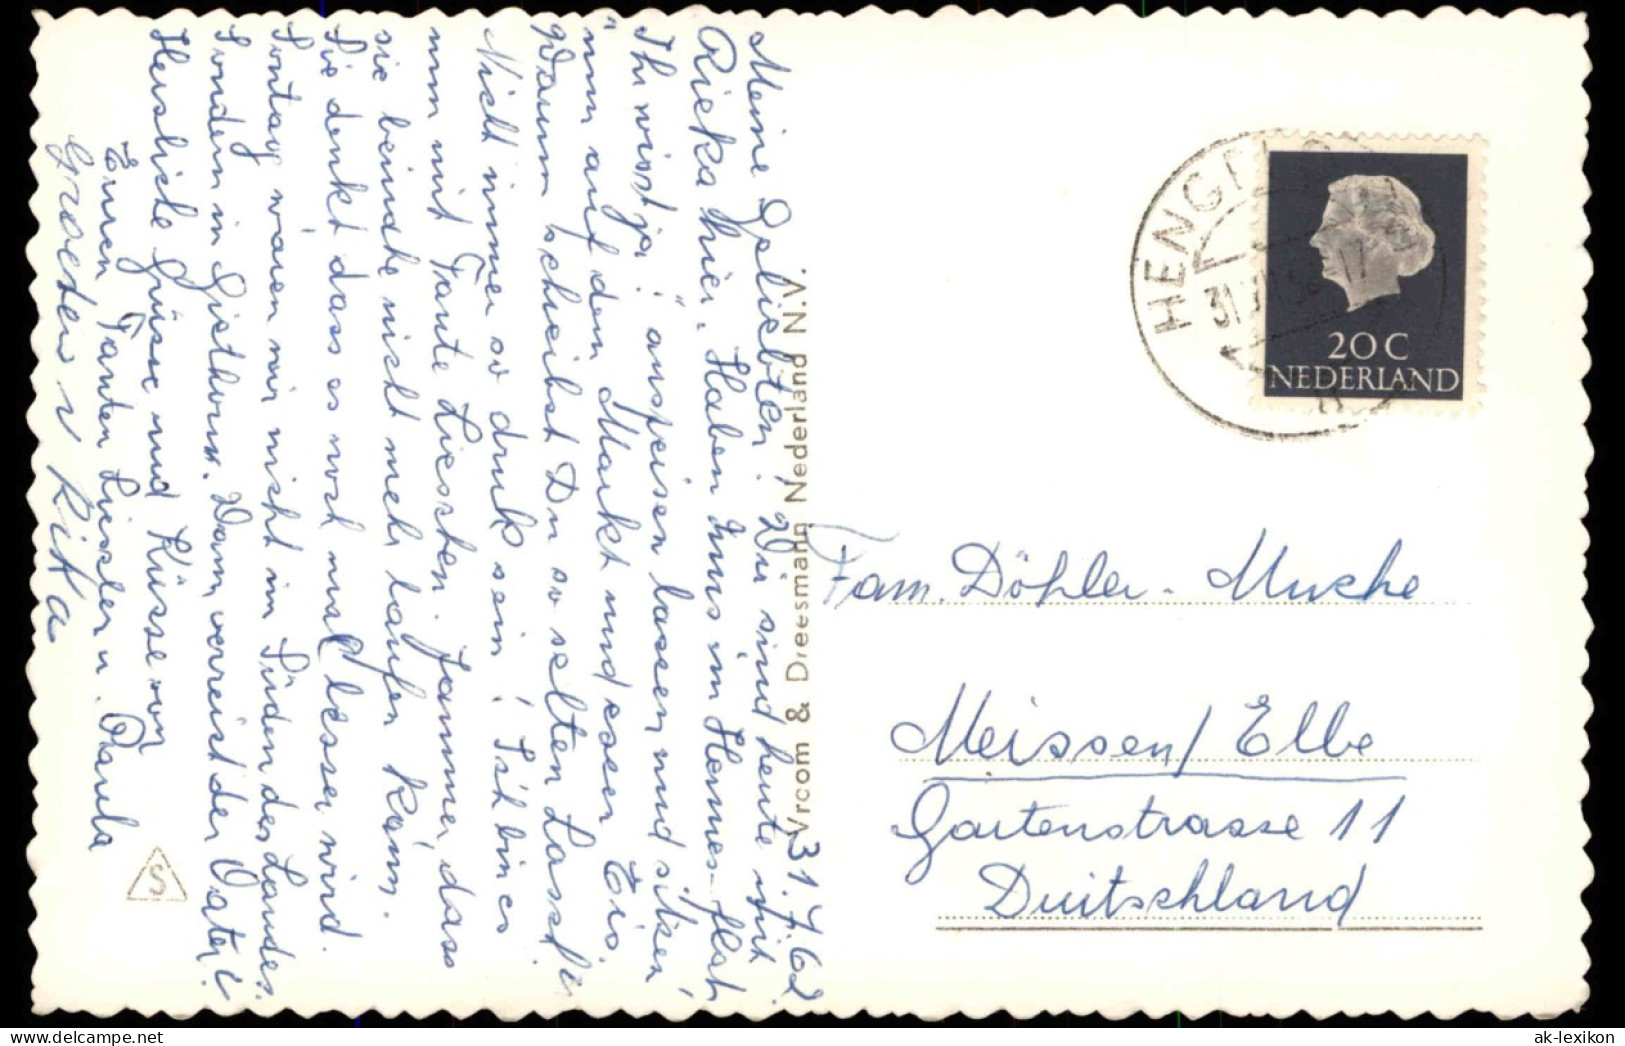 31.7.62.
Meine Geliebten! Wir sind heute mit
Rieka hier. Haben uns im Hannes-flat,
Ihr wisst ja! "auspeisen lassen und sitzen
nun auf dem Markt und essen Eis.
Warum schreibst Du so selten Lass
Nicht immer so druk sein! Ich bin es
nun mit Tante Lieschen. Jammer, dass
sie beinahe nicht mehr laufen kann.
Sie denkt dass es noch mal besser wird.
Sontag waren wir nicht im Süden des Landes.
Sondern in Giethoorn. Dann verreist der Vater!
Herzliche Grüsse und Küsse von
Euren Tanten Liesslen u. Paula
Groeten v Rika
S
Vroom & Dreesmann Nederland N.V.
HENGELO
31
20 C
NEDERLAND
Fam. Döhler - Musche
Meissen / Elbe
Gartenstrasse 11
Duitschland
ak-lexikon